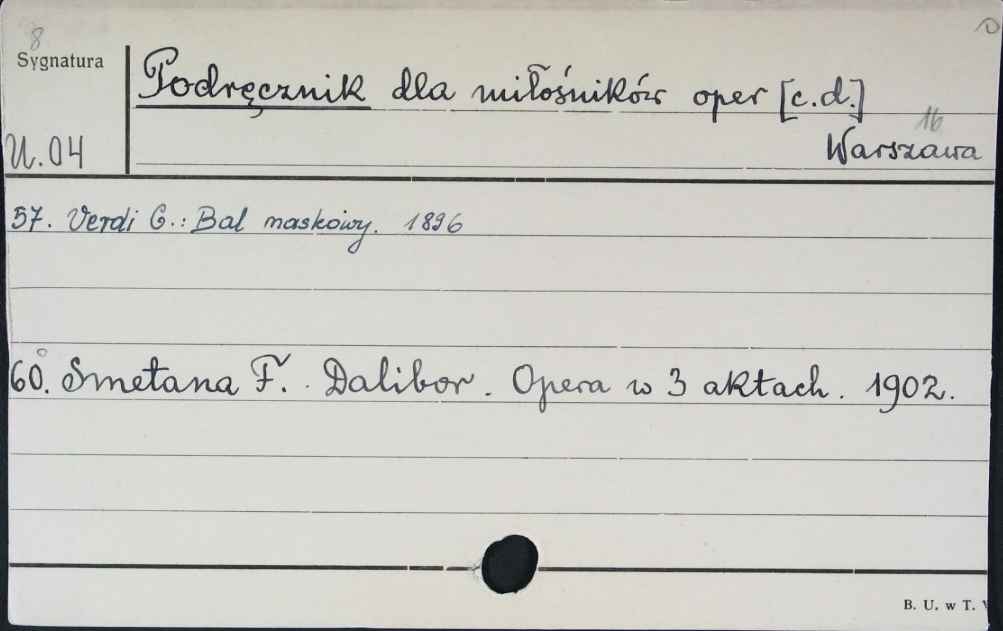 8
Sygnatura
Podręcznik dla miłośników oper [c.d.]
16
U.04
Warszawa
57. Verdi G.: Bal maskowy. 1896
60. Smetana F. Dalibor. Opera w 3 aktach. 1902.
B. U. w T.